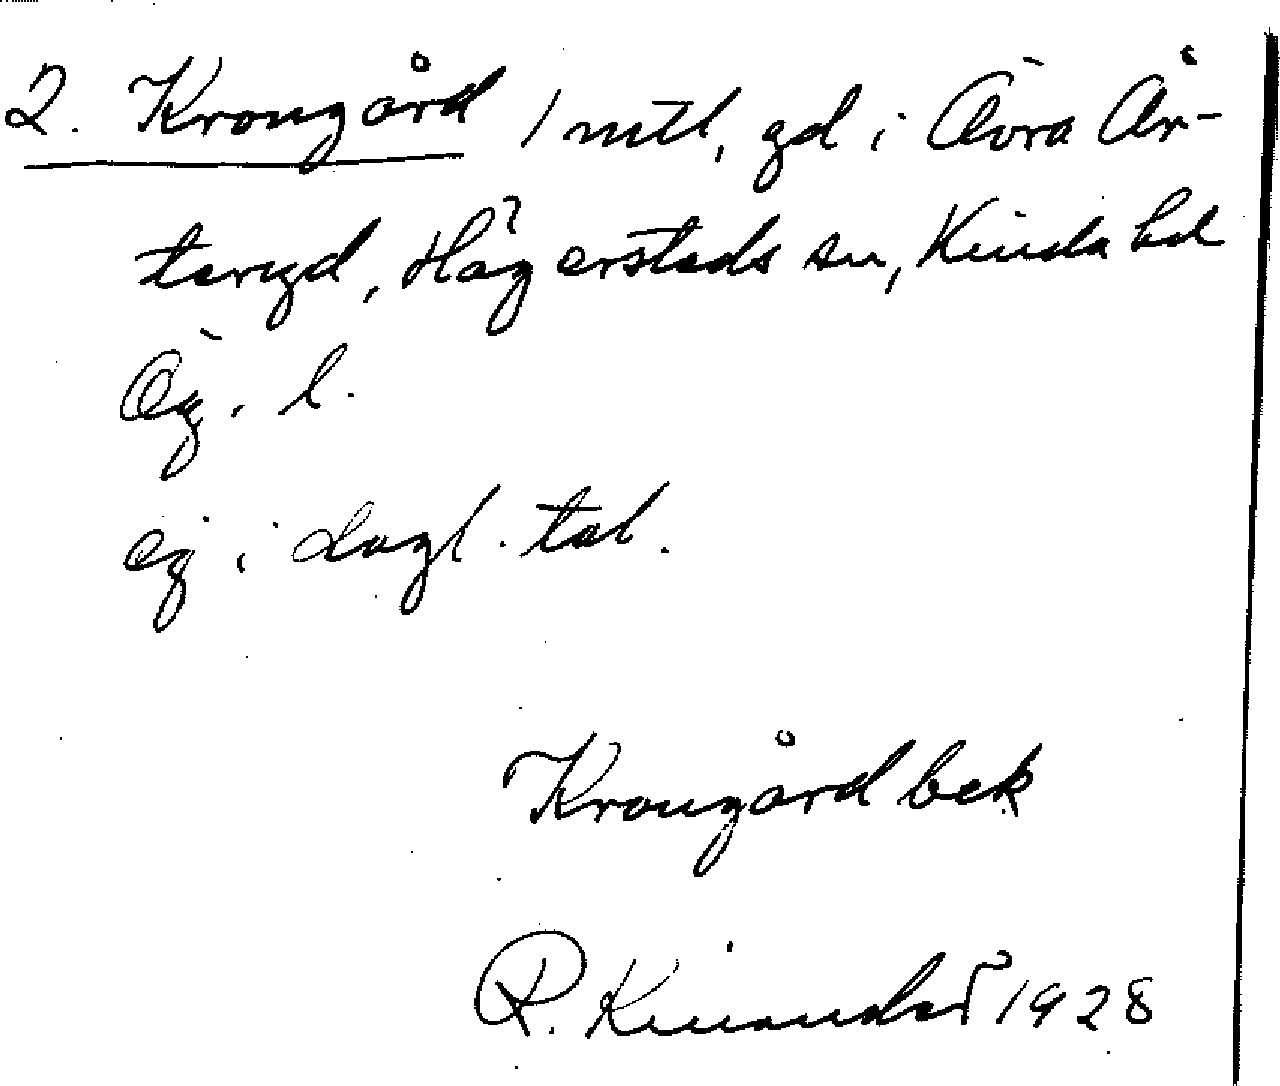 2. Krongård 1 mtl, gd i Övra År-
teryd, Hägerstads sn, Kinda hd
Ög. l.
ej i dagl. tal.
Krongård bek
R. Kinander 1928